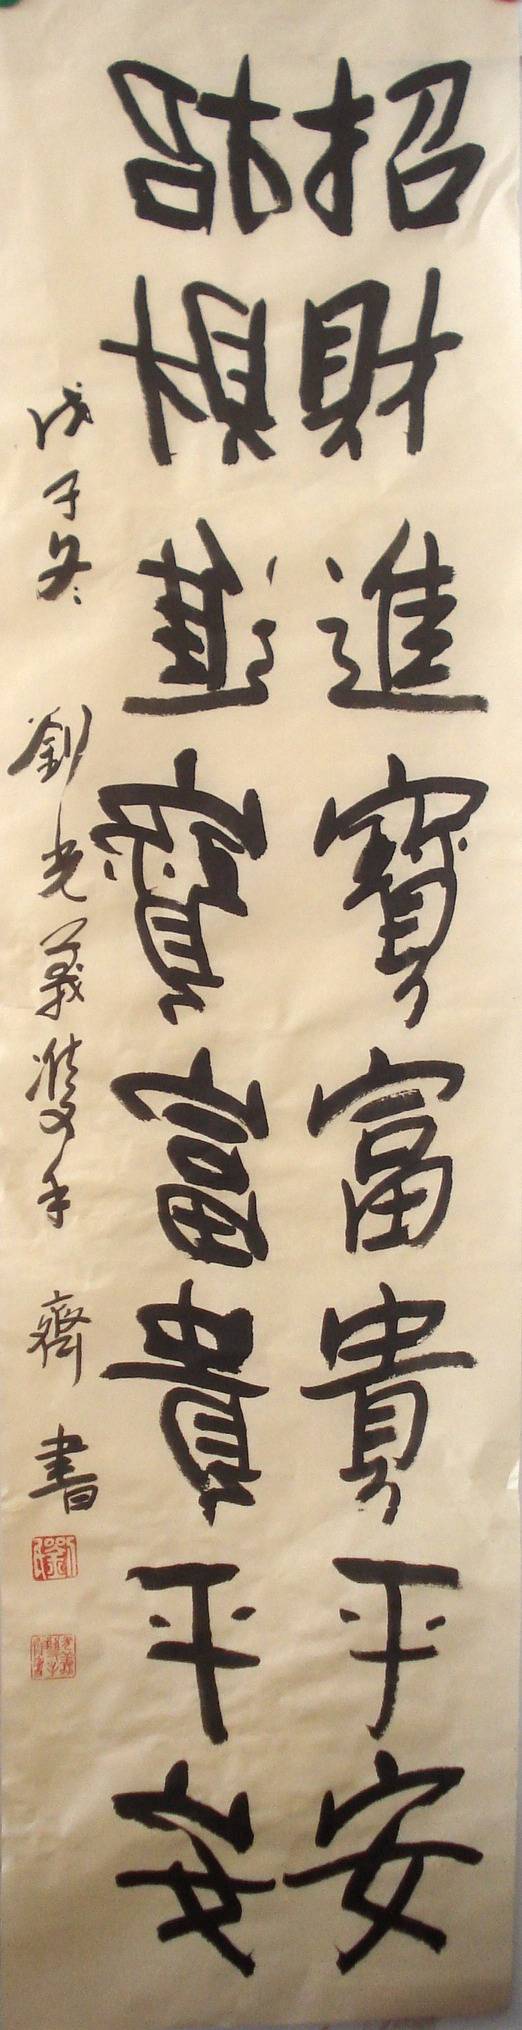 招財進寶富貴平安
招財進寶富貴平安
戊子冬 劉光義雙手齊書